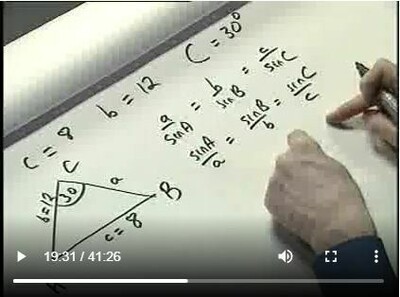 c = 8 b = 12 C = 30°
a/sin A = b/sin B = c/sin C
sin A/a = sin B/b = sin C/c
C
30
a
B
b = 12
c = 8
A
19:31 / 41:26